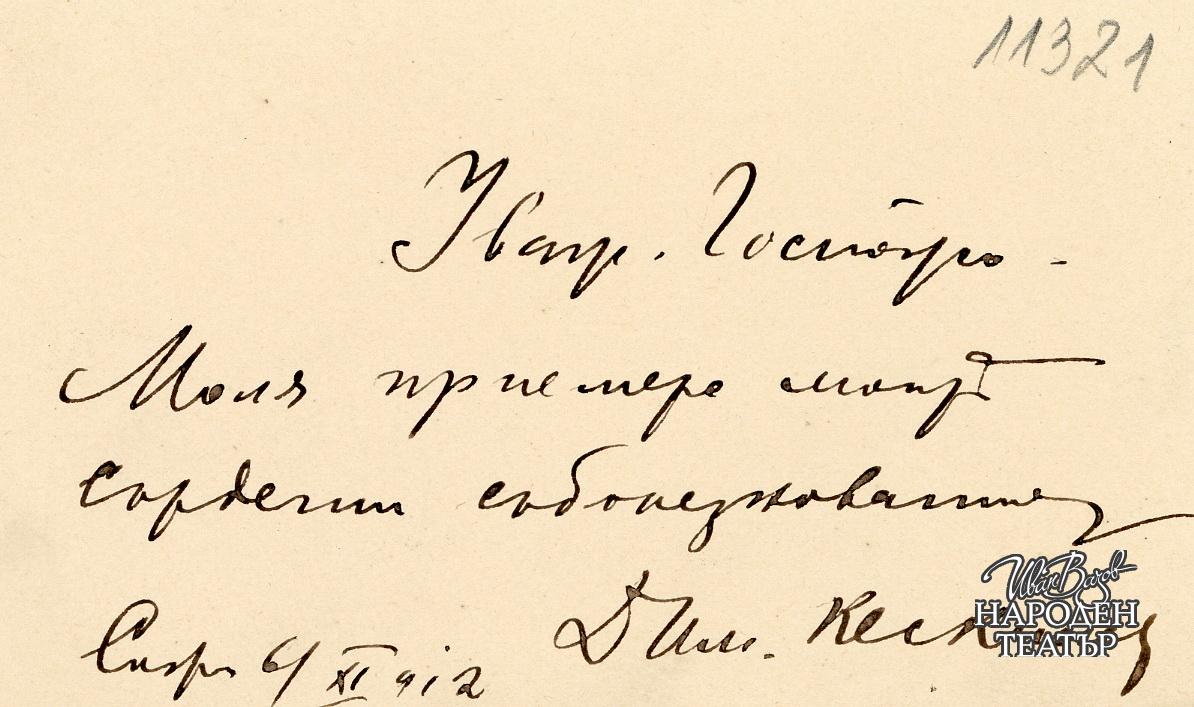 11321
Уваж. Господжо -
Моля приемете моитѣ
сърдечни съболезнования
6/XI 912
Иван Вазов
НАРОДЕН
ТЕАТЪР